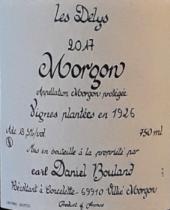 Les Délys
2017
Morgon
Appellation Morgon protégée
Vignes plantées en 1926
Alc. 13,5%/vol 750 ml
Mis en bouteille à la propriété par
earl Daniel Bouland
Récoltant à Corcelette - 69910 Villié Morgon
Product of France